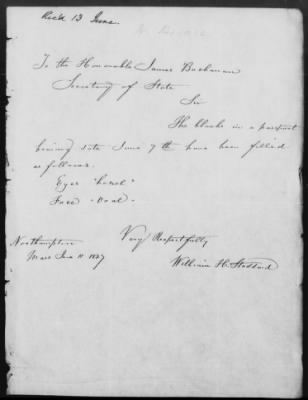 Rec'd 13 June.
To the Honorable James Buchanan
Secretary of State
Sir
The blanks in a passport
bearing date June 7th have been filled
as follows.
Eyes "hazel"
Face - Oval -
Northampton
Mass June 11 1847
Very Respectfully
William H. Stoddard